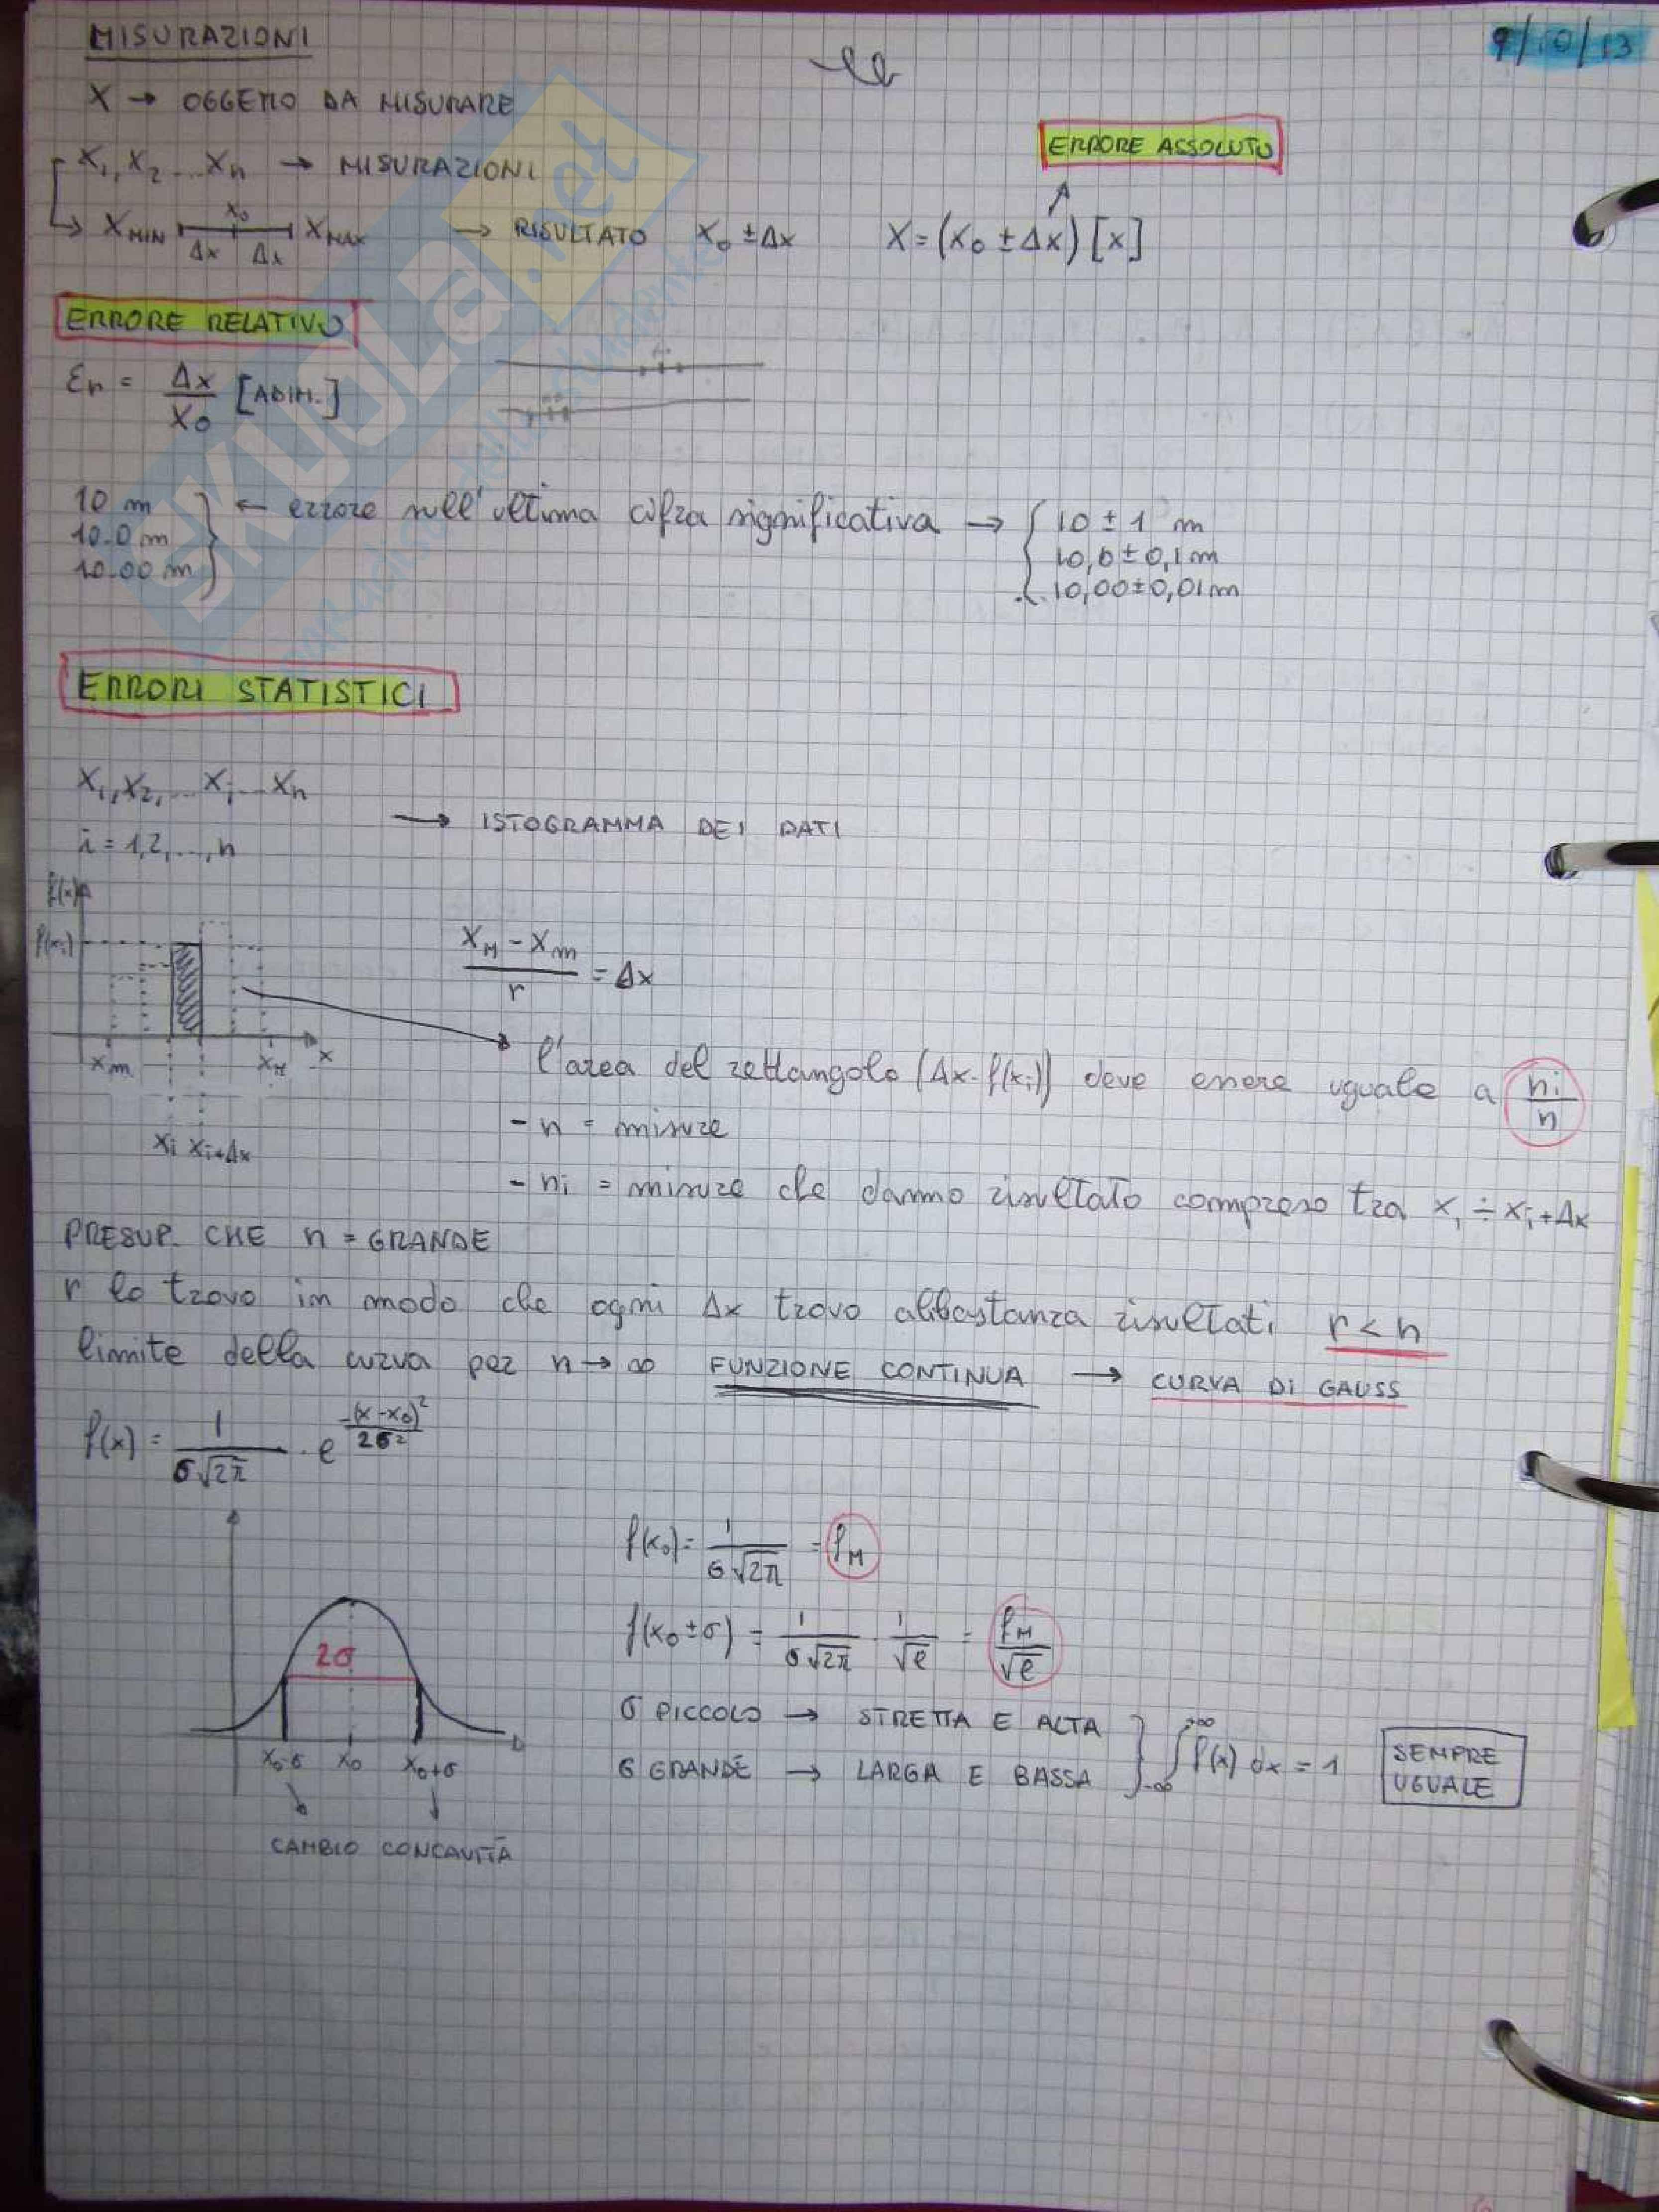 MISURAZIONI
9/10/13
X → OGGETTO DA MISURARE
ERRORE ASSOLUTO
X₁, X₂ ... Xₙ → MISURAZIONI
X_MIN X₀ X_MAX → RISULTATO X₀ ± Δx X = (X₀ ± Δx) [x]
Δx Δx
ERRORE RELATIVO
εr = Δx/X₀ [ADIM.]
10 m
10.0 m
10.00 m
← errore sull'ultima cifra significativa →
10 ± 1 m
10,0 ± 0,1 m
10,00 ± 0,01 m
ERRORI STATISTICI
X₁, X₂, ... Xᵢ ... Xₙ
→ ISTOGRAMMA DEI DATI
i = 1,2,...,n
f(x)
f(xᵢ)
(X_M - X_m)/r = Δx
X_m X_M x
Xᵢ Xᵢ+Δx
l'area del rettangolo (Δx · f(xᵢ)) deve essere uguale a nᵢ/n
- n = misure
- nᵢ = misure che danno risultato compreso tra xᵢ ÷ xᵢ+Δx
PRESUP. CHE n = GRANDE
r lo trovo in modo che ogni Δx trovo abbastanza risultati r < n
limite della curva per n → ∞ FUNZIONE CONTINUA → CURVA DI GAUSS
f(x) = 1/(σ√2π) · e^(-(x-x₀)²/2σ²)
f(x₀) = 1/(σ√2π) = f_M
f(x₀ ± σ) = 1/(σ√2π) · 1/√e = f_M/√e
2σ
σ PICCOLO → STRETTA E ALTA
σ GRANDE → LARGA E BASSA
∫_-∞^+∞ f(x) dx = 1
SEMPRE UGUALE
X₀-σ X₀ X₀+σ
CAMBIO CONCAVITÀ
SKUOLa.net